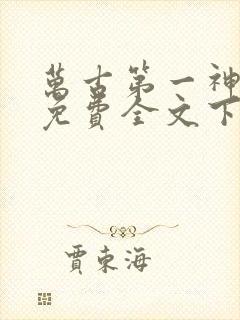 萬古第一神
免費全文下
賈東海